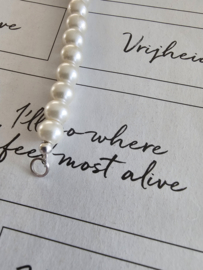 Vrijhei
I'll go where
I feel most alive